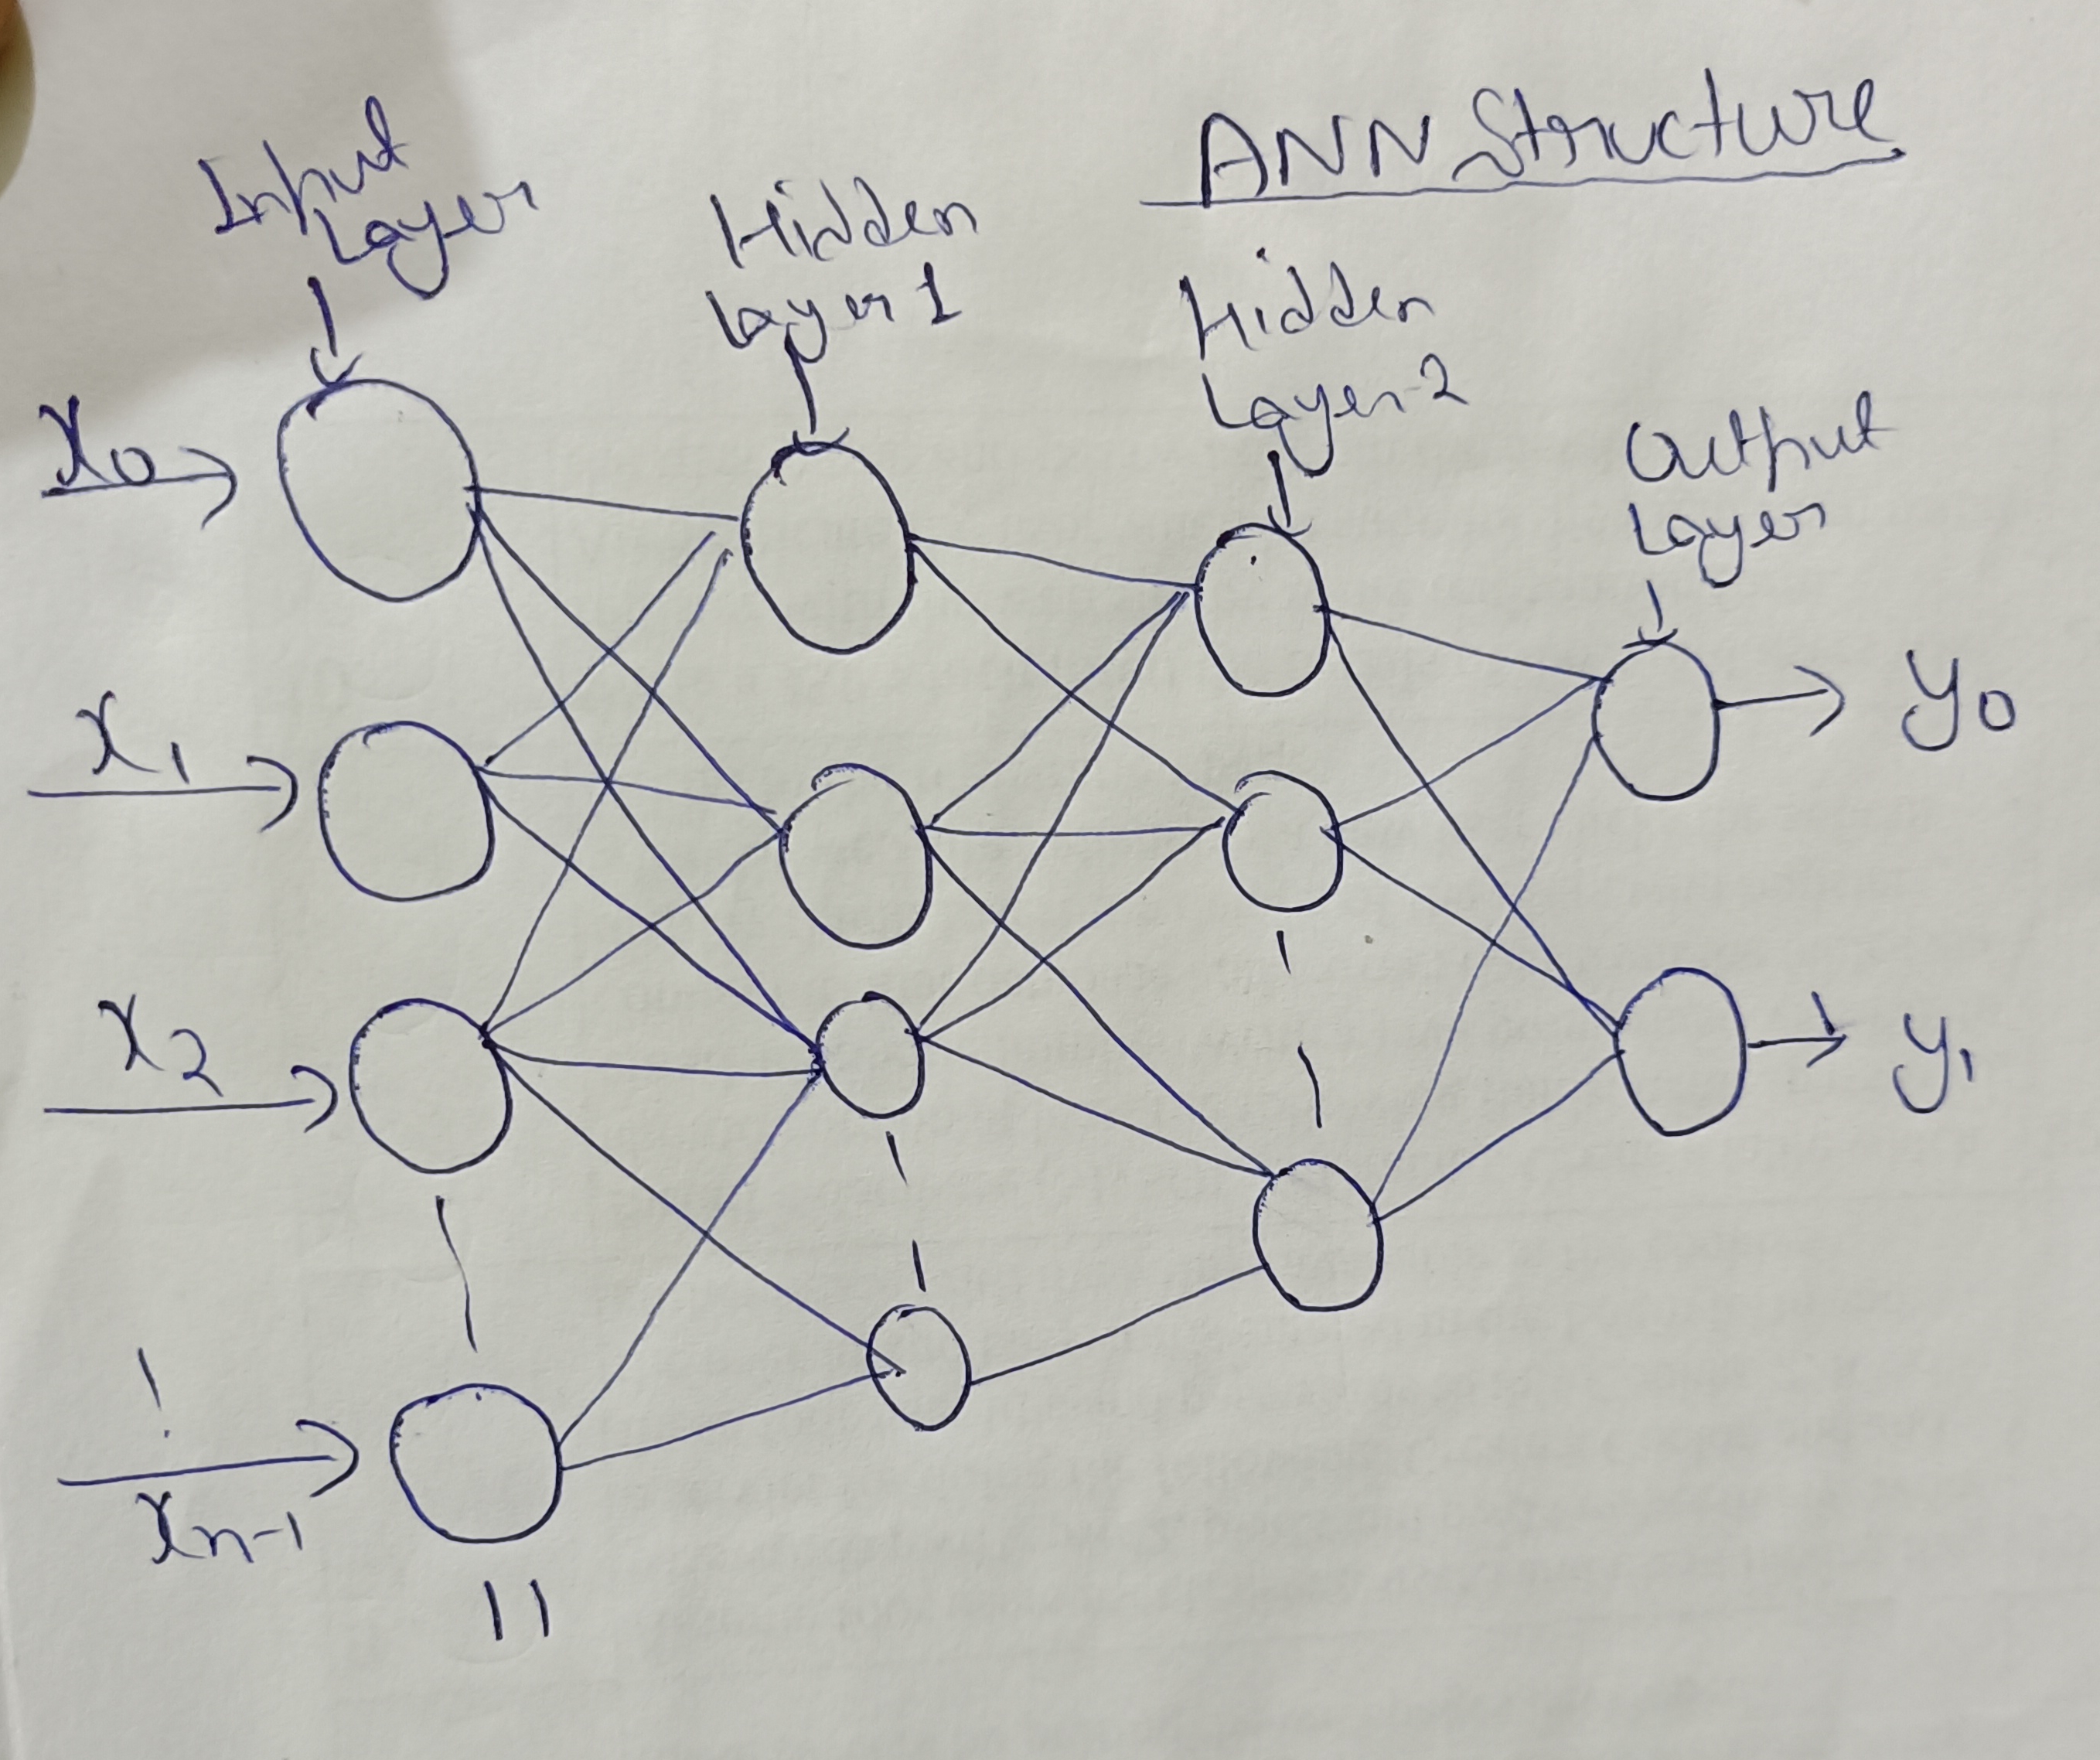 ANN Structure
Input
Layer
Hidden
Layer 1
Hidden
Layer 2
Output
Layer
x0
x1
x2
xn-1
y0
y1